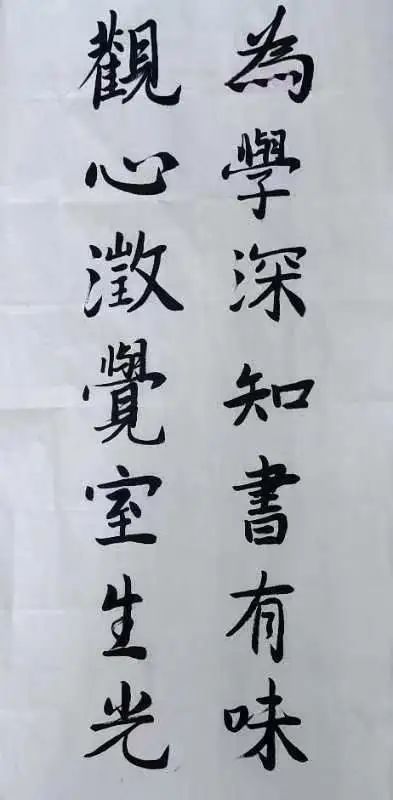 為學深知書有味
觀心澂覺室生光